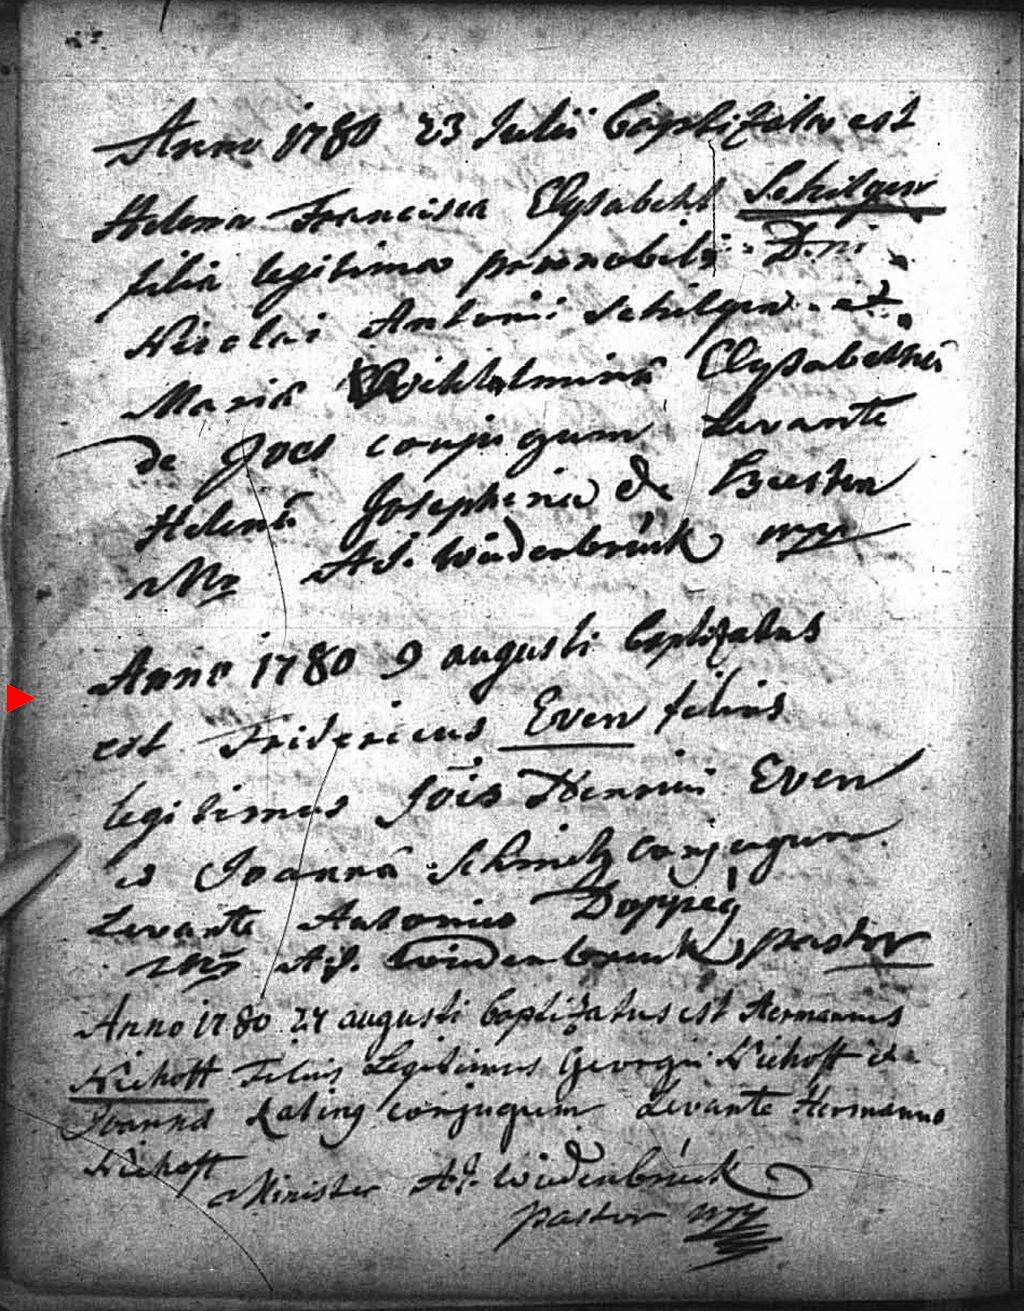 Anno 1780 23 Julii baptizata est
Helena Francisca Elysabeht Schilgen
filia legitima praenobilis D.ni
Nicolai Antonii Schilgen et
Mariâ Wihhelminâ Elysabethâ
de Goes conjugum Levante
Helenâ Josephina de Beesten
Mr A.J. Wiedenbrück mpp
Anno 1780 9 augusti baptizatus
est Fridericus Even filius
legitimus Jois Henrici Even
et Joannâ Schmitz conjugum
Levante Antonio
Mr A.J. Wiedenbruck pastor
Anno 1780 24 augusti baptizatus est Hermannus
Niehoff Filius Legitimus Georgii Niehoff et
Joanna Rating conjugum Levante Hermanno
Niehoff
Minister A.J. Wiedenbrück
pastor mpp